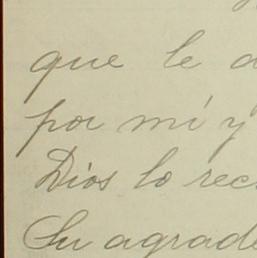 que le d
por mí y
Dios lo rec
Su agrade